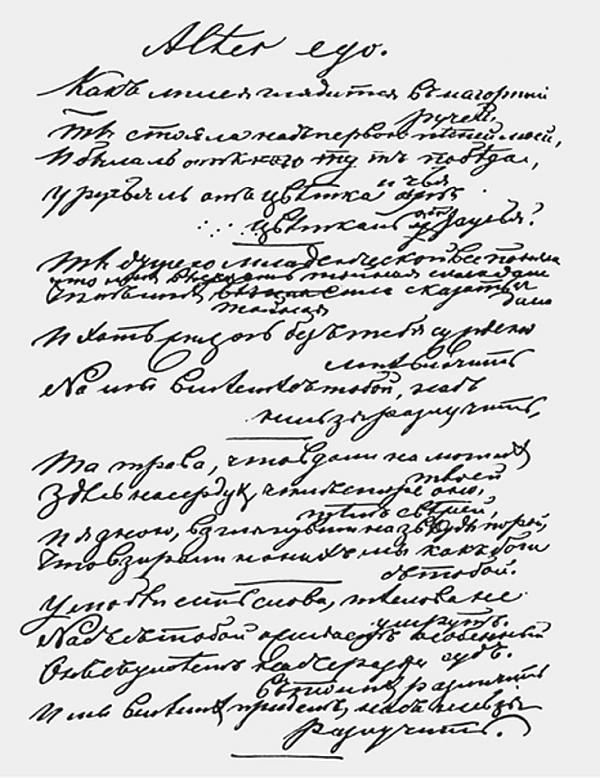 Alter ego.
Какъ лилея глядится въ нагорный
ручей,
Ты стояла надъ первою пѣсней моей,
И была ль тутъ побѣда,
У ручья ль отъ цвѣтка и чья
цвѣтка ль отъ ручья?
Ты душою младенческой все поняла
Что мнѣ высказать тайная сила дала
сила сказать
дала
тайная
И хоть жизнь безъ тебя суждено
мнѣ влачить
Но мы вмѣстѣ съ тобой, насъ
нельзя разлучить,
Та трава, что вдали на могилѣ
твоей
Здѣсь на сердцѣ, чѣмъ старе оно,
тѣмъ свѣжей,
И я знаю, взглянувши на звѣзды порой,
Что взирали на нихъ мы какъ боги
съ тобой.
У любви есть слова, тѣ слова не
умрутъ.
Насъ съ тобой ожидаетъ особенный
судъ.
Онъ съумѣетъ насъ сразу
въ толпѣ различить
И мы вмѣстѣ придемъ, насъ нельзя
разлучить.